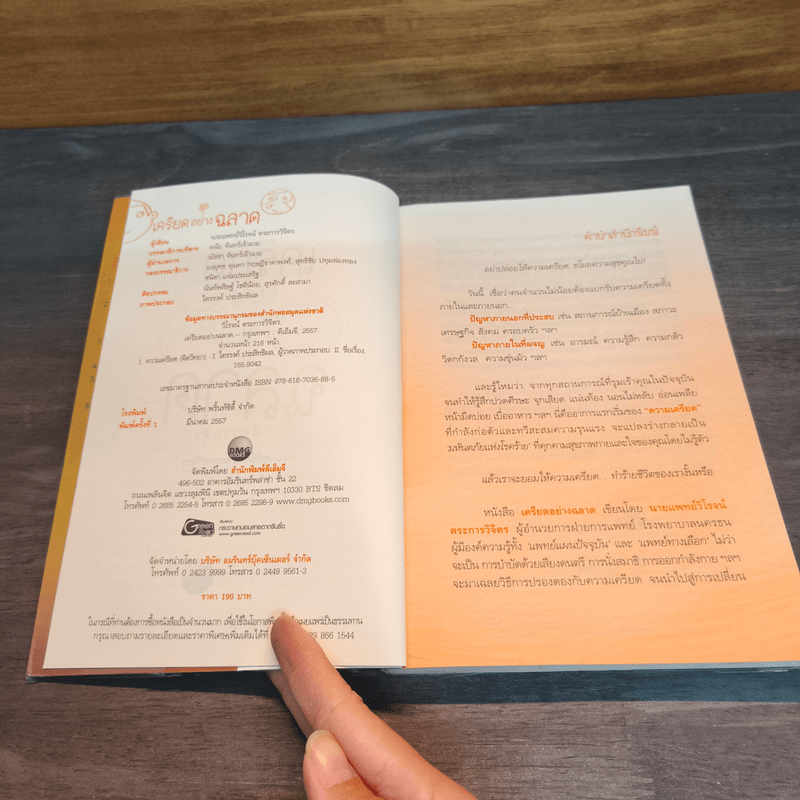 เครียดอย่างฉลาด
สุด
ผู้เขียน นายแพทย์วิโรจน์ ตระการวิจิตร
บรรณาธิการบริหาร ดนัย จันทร์เจ้าฉาย
ผู้อำนวยการ ณัชชา จันทร์เจ้าฉาย
กองบรรณาธิการ
ชนิดา แจ่มประเสริฐ
ศิลปกรรม
ภาพประกอบ ไตรรงค์ ประสิทธิผล
ข้อมูลทางบรรณานุกรมของสำนักหอสมุดแห่งชาติ
วิโรจน์ ตระการวิจิตร
เครียดอย่างฉลาด.-- กรุงเทพฯ : ดีเอ็มจี, 2557.
จำนวนหน้า 216 หน้า
1. ความเครียด (จิตวิทยา). I. ไตรรงค์ ประสิทธิผล, ผู้วาดภาพประกอบ. II. ชื่อเรื่อง.
155.9042
เลขมาตรฐานสากลประจำหนังสือ ISBN 978-616-7036-88-5
โรงพิมพ์ บริษัท พริ้นท์ซิตี้ จำกัด
พิมพ์ครั้งที่ 1 มีนาคม 2557
DMG
BOOKS
จัดพิมพ์โดย สำนักพิมพ์ดีเอ็มจี
496-502 อาคารอัมรินทร์พลาซ่า ชั้น 22
ถนนเพลินจิต แขวงลุมพินี เขตปทุมวัน กรุงเทพฯ 10330 BTS ชิดลม
โทรศัพท์ 0 2685 2254-5 โทรสาร 0 2685 2298-9 www.dmgbooks.com
Green
Read
กระดาษถนอมสายตากรีนรี้ด
www.greenread.com
จัดจำหน่ายโดย บริษัท อมรินทร์บุ๊คเซ็นเตอร์ จำกัด
โทรศัพท์ 0 2423 9999 โทรสาร 0 2449 9561-3
ราคา 190 บาท
ในกรณีที่ท่านต้องการซื้อหนังสือเป็นจำนวนมาก เพื่อใช้ในโอกาสพิเศษ เผยแพร่เป็นธรรมทาน
กรุณาสอบถามรายละเอียดและราคาพิเศษเพิ่มเติมได้ที่ 89 866 1544
คำนำสำนักพิมพ์
อย่าปล่อยให้ความเครียด ขโมยความสุขคุณไป!
วันนี้ เชื่อว่าคนจำนวนไม่น้อยต้องแบกรับความเครียดทั้ง
ภายในและภายนอก...
ปัญหาภายนอกที่ประสบ เช่น สถานการณ์บ้านเมือง สภาวะ
เศรษฐกิจ สังคม ครอบครัว ฯลฯ
ปัญหาภายในที่ผจญ เช่น อารมณ์ ความรู้สึก ความกลัว
วิตกกังวล ความขุ่นมัว ฯลฯ
และรู้ไหมว่า จากทุกสถานการณ์ที่รุมเร้าคุณในปัจจุบัน
จนทำให้รู้สึกปวดศีรษะ จุกเสียด แน่นท้อง นอนไม่หลับ อ่อนเพลีย
หน้ามืดบ่อย เบื่ออาหาร ฯลฯ นี่คืออาการแรกเริ่มของ “ความเครียด”
ที่กำลังก่อตัวและทวีสะสมความรุนแรง จะแปลงร่างกลายเป็น
‘มหันตภัยแห่งโรคร้าย’ ที่คุกคามสุขภาพกายและใจของคุณโดยไม่รู้ตัว
แล้วเราจะยอมให้ความเครียด... ทำร้ายชีวิตของเรางั้นหรือ
หนังสือ เครียดอย่างฉลาด เขียนโดย นายแพทย์วิโรจน์
ตระการวิจิตร ผู้อำนวยการฝ่ายการแพทย์ โรงพยาบาลนครธน
ผู้มีองค์ความรู้ทั้ง ‘แพทย์แผนปัจจุบัน’ และ ‘แพทย์ทางเลือก’ ไม่ว่า
จะเป็น การบำบัดด้วยเสียงดนตรี การนั่งสมาธิ การออกกำลังกาย ฯลฯ
จะมาเฉลยวิธีการปรองดองกับความเครียด จนนำไปสู่การเปลี่ยน